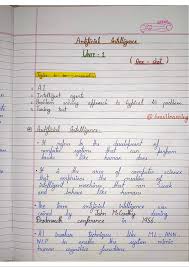 Artificial Intelligence
Unit - 1
( One - shot )
Topics to be covered
AI
Intelligent agents
Problem solving approach to typical AI problem
Turing test
Artificial Intelligence
It refers to the development of
computer system that can perform
tasks like human does
It is the area of computer science
that emphasizes the creation of
intelligent machines that can work
and behave like humans
The term artificial intelligence was
coined by John McCarthy during
Dartmouth conference in 1956
AI involves techniques like ML, ANN,
NLP to enable the system mimic
human cognitive functions